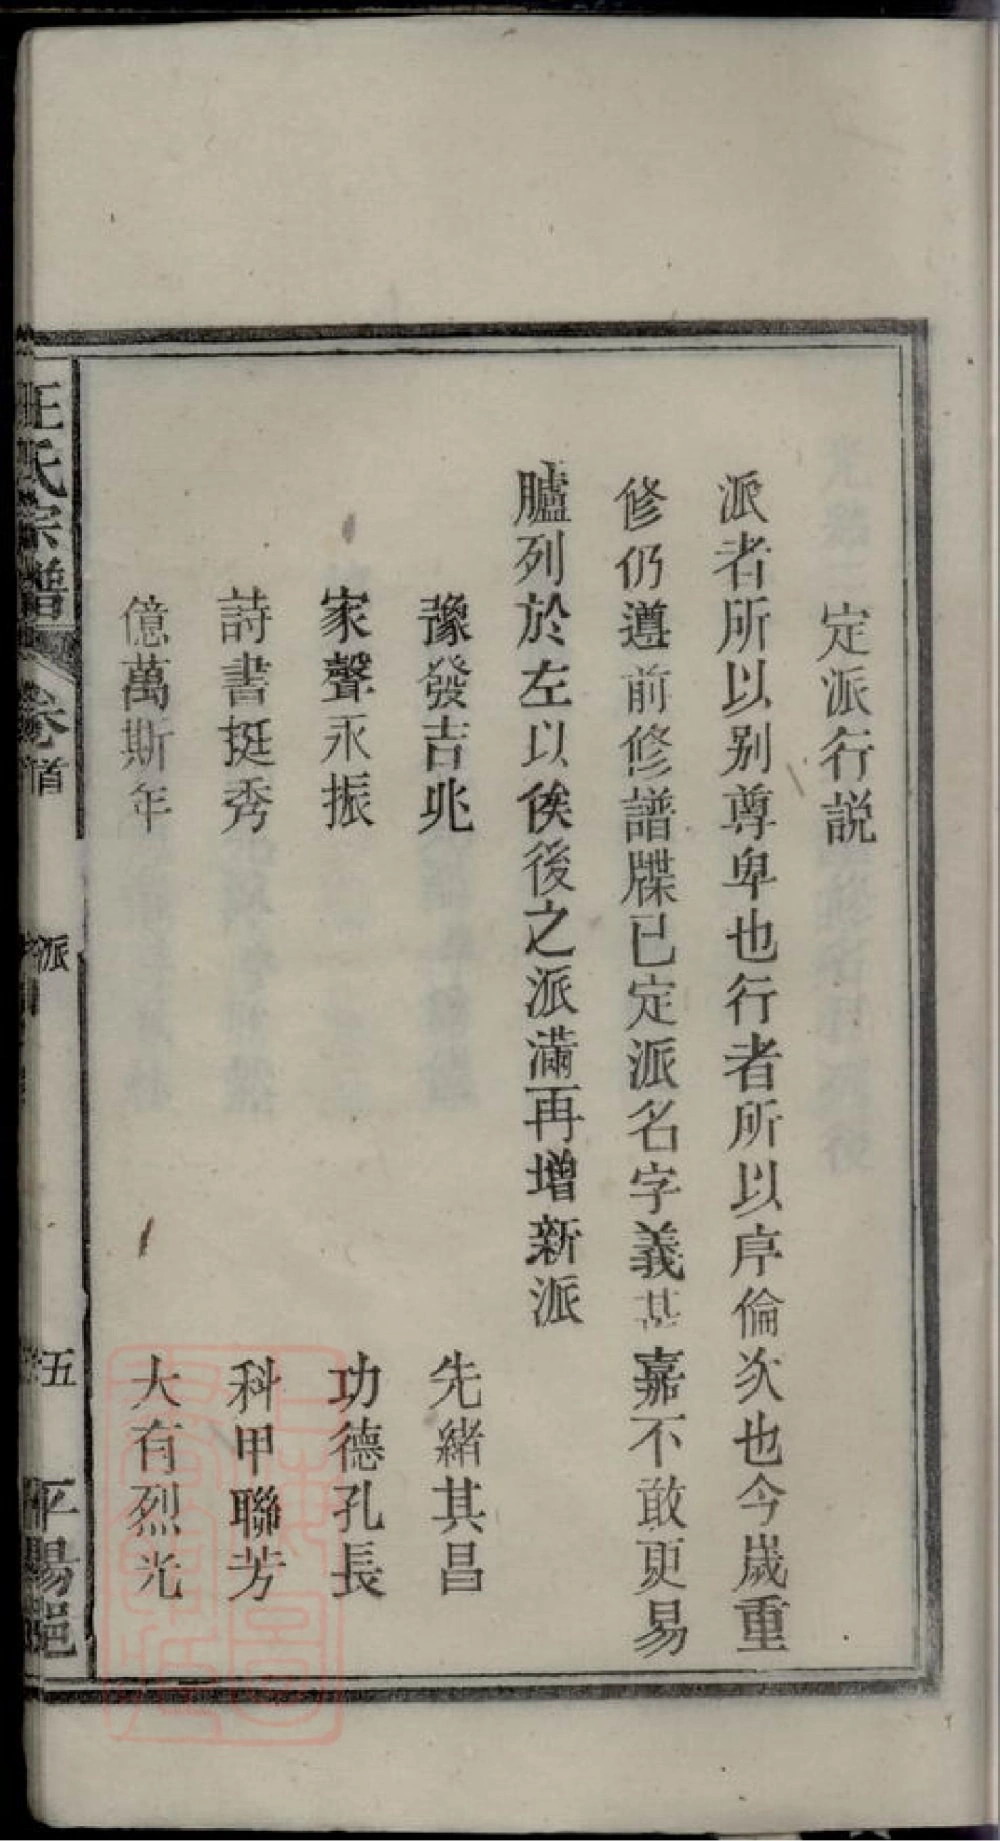 定派行説
派者所以别尊卑也行者所以序倫次也今歲重
修仍遵前修譜牒已定派名字義甚嘉不敢更易
臚列於左以俟後之派滿再增新派
豫發吉兆　先緒其昌
家聲永振　功德孔長
詩書挺秀　科甲聯芳
億萬斯年　大有烈光
汪氏宗譜　卷首　派　五　平陽